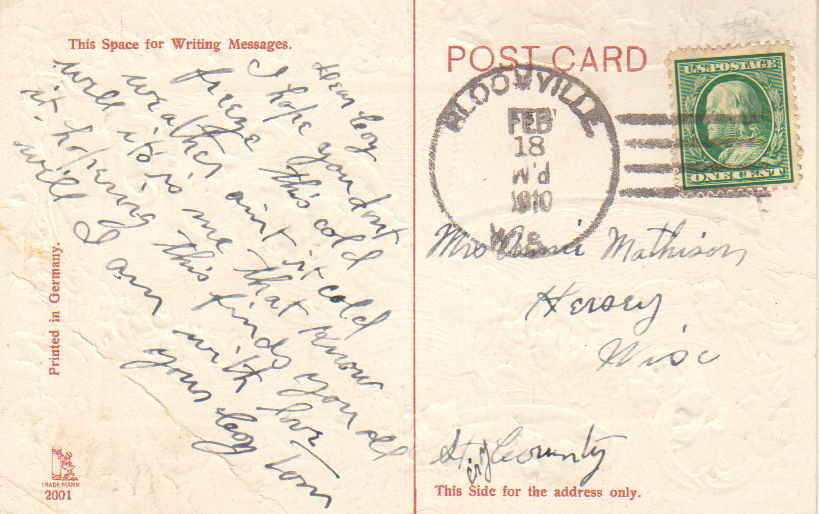 This Space for Writing Messages.
Dear boy
I hope you dont
freeze this cold
weather aint it cold
will its is me that know
it. hopeing this finds you all
will I am with love
your boy Tom
Printed in Germany.
TRADE MARK
2001
POST CARD
BLOOMVILLE
FEB
18
1910
WIS.
U.S. POSTAGE
ONE CENT
Mrs Mathison,
Hersey
Wisc
St. County
This Side for the address only.